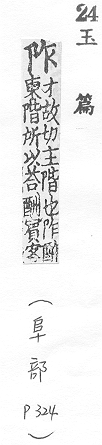 24
玉篇
阼才故切主階也阼醋
東階所以荅酬賓客
(阜部 P324)